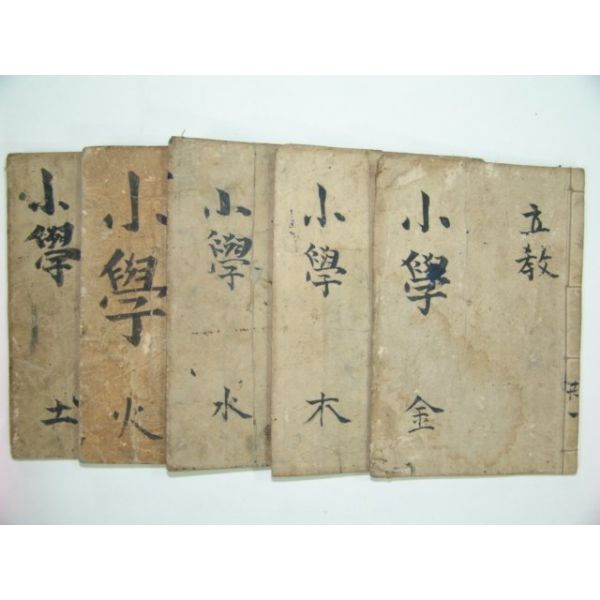 立教
小學
金
小學
木
小學
水
小學
火
小學
土